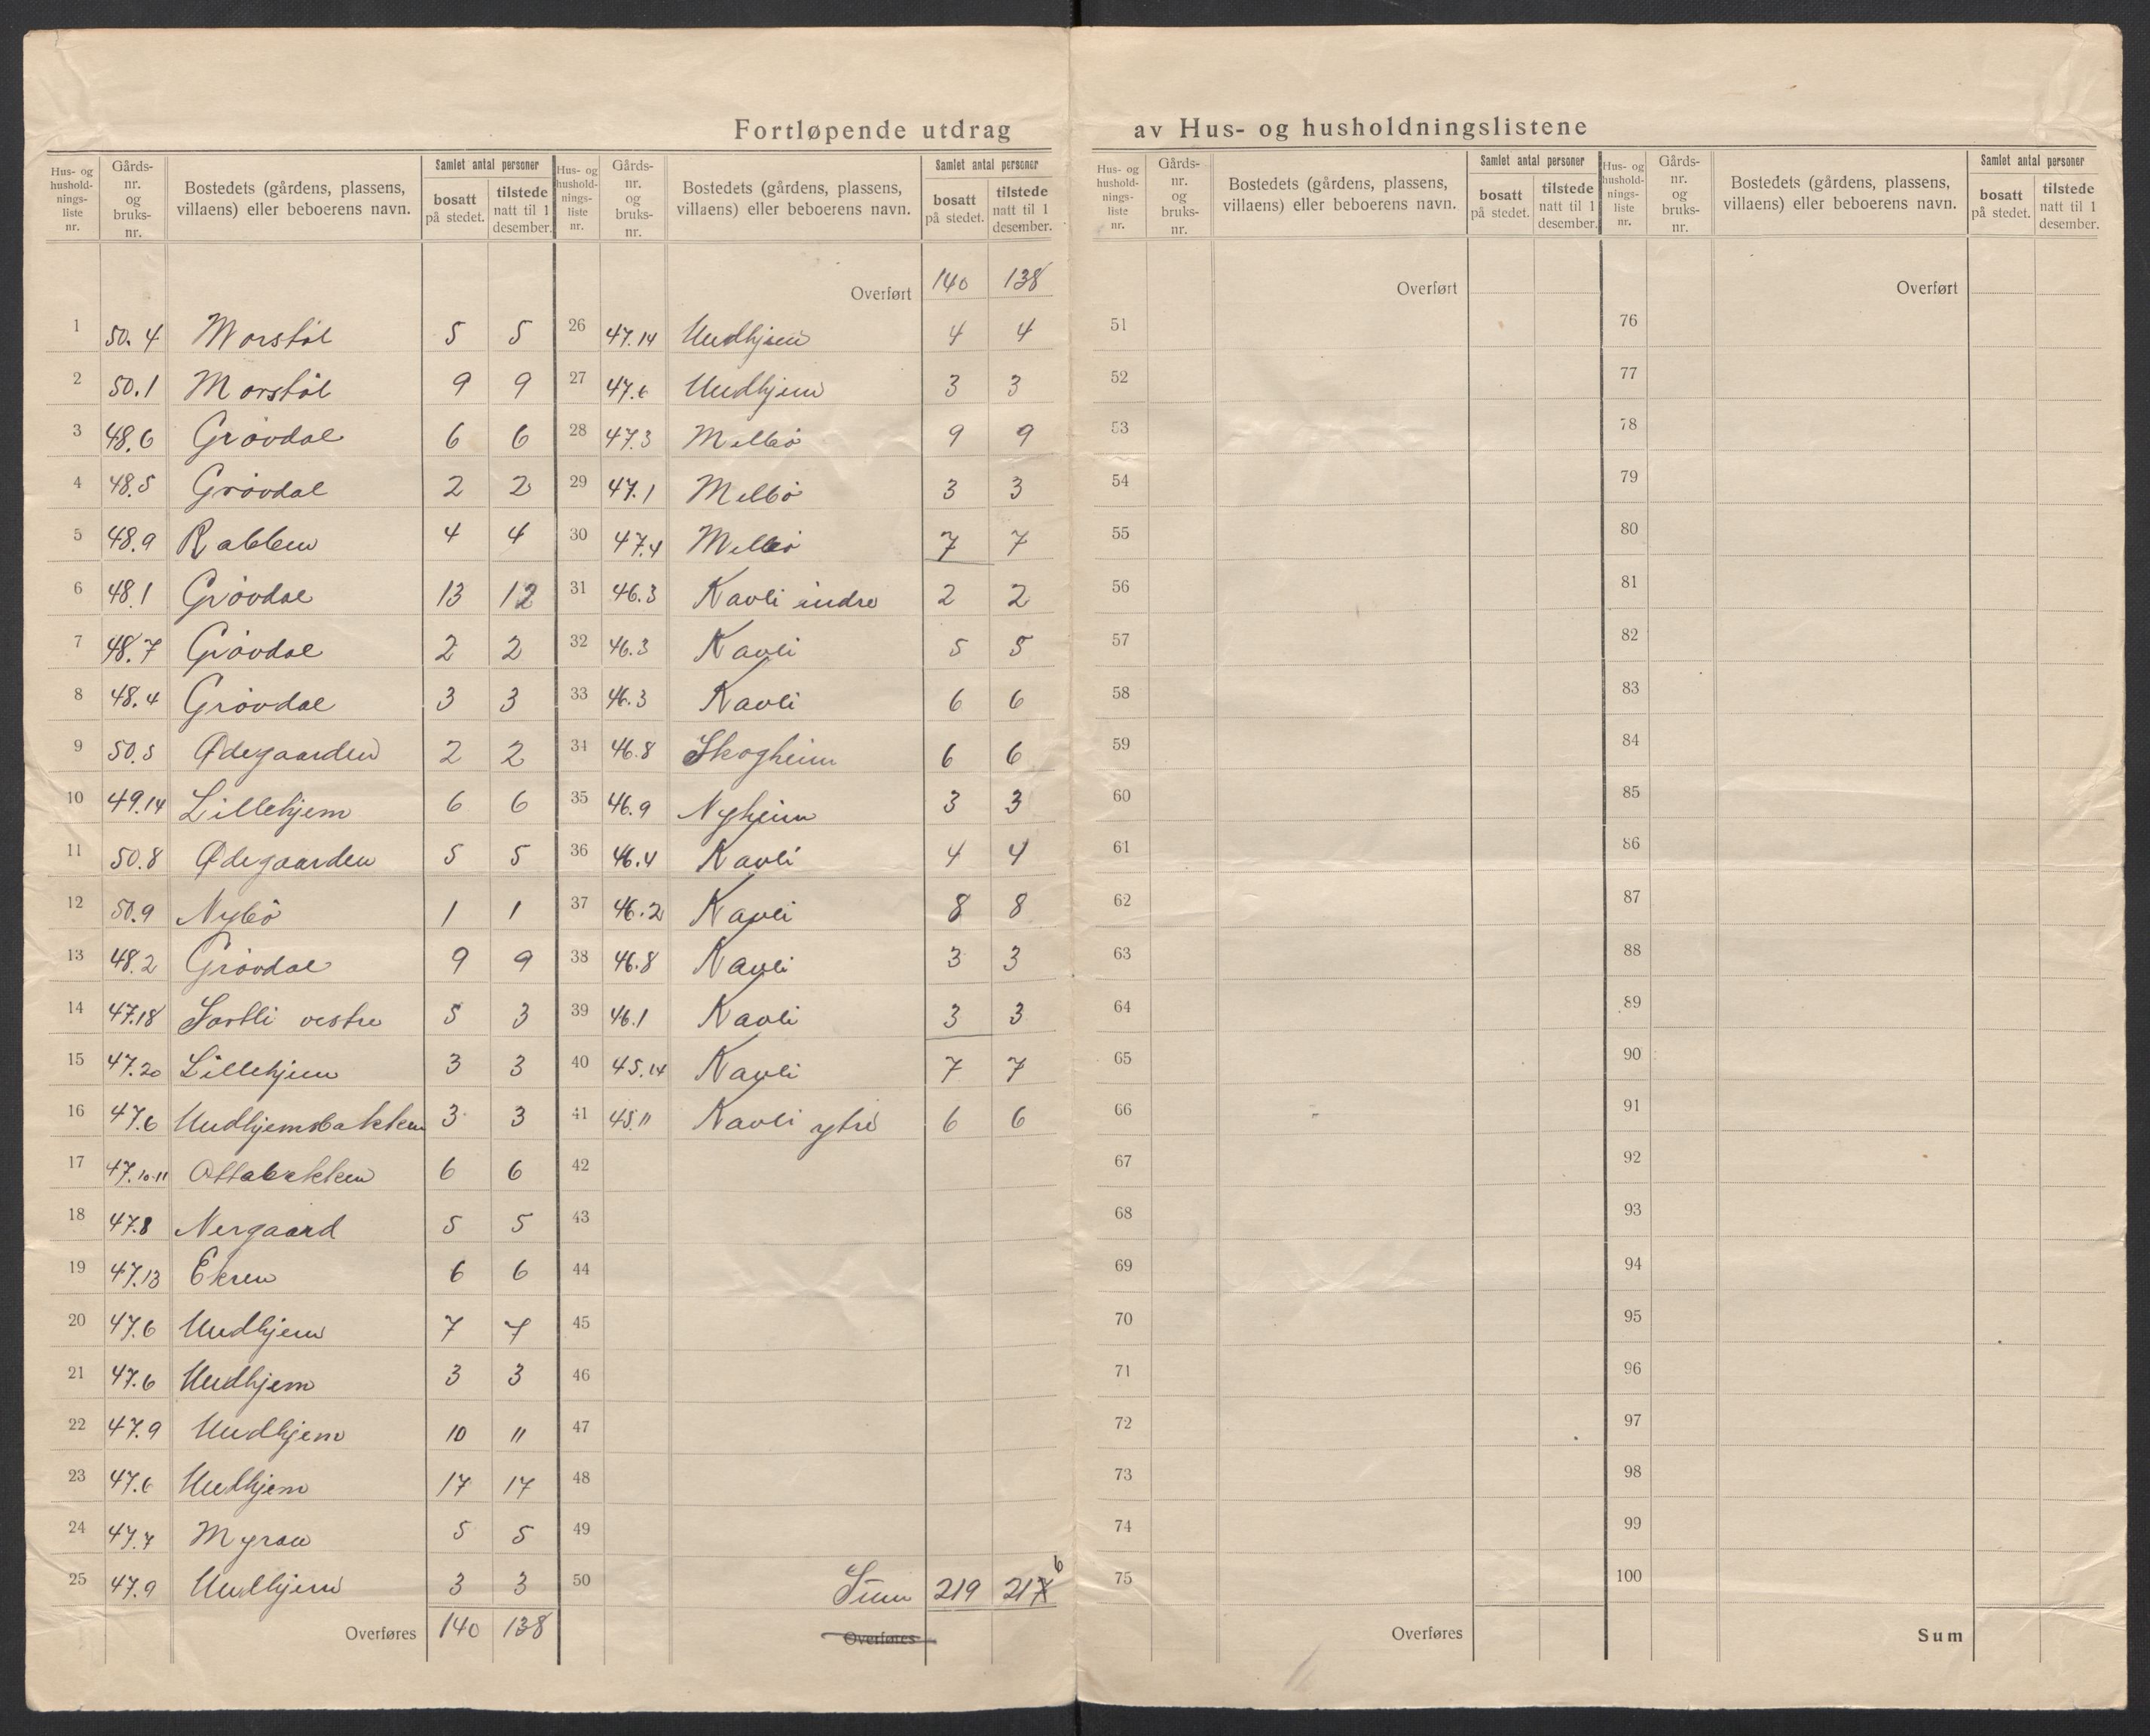 Fortløpende utdrag av Hus- og husholdningslistene
Hus- og husholdningsliste nr. | Gårdsnr. og bruksnr. | Bostedets (gårdens, plassens, villaens) eller beboerens navn. | Samlet antal personer bosatt på stedet. | tilstede natt til 1 desember.
1 50.4 Morstøl 5 5
2 50.1 Morstøl 9 9
3 48.6 Grövdal 6 6
4 48.5 Grövdal 2 2
5 48.9 Rabben 4 4
6 48.1 Grövdal 13 12
7 48.7 Grövdal 2 2
8 48.4 Grövdal 3 3
9 50.5 Ødegaarden 2 2
10 49.14 Lillehjem 6 6
11 50.8 Ødegaarden 5 5
12 50.9 Nybö 1 1
13 48.2 Grövdal 9 9
14 47.18 vestre 5 3
15 47.20 Lillehjem 3 3
16 47.6 Undhjemsbakken 3 3
17 47.10-11 6 6
18 47.8 Nergaard 5 5
19 47.13 Ekren 6 6
20 47.6 Undhjem 7 7
21 47.6 Undhjem 3 3
22 47.9 Undhjem 10 11
23 47.6 Undhjem 17 17
24 47.7 Myran 5 5
25 47.9 Undhjem 3 3
Overføres 140 138
Hus- og husholdningsliste nr. | Gårdsnr. og bruksnr. | Bostedets (gårdens, plassens, villaens) eller beboerens navn. | Samlet antal personer bosatt på stedet. | tilstede natt til 1 desember.
Overført 140 138
26 47.14 Undhjem 4 4
27 47.6 Undhjem 3 3
28 47.3 Melbö 9 9
29 47.1 Melbö 3 3
30 47.4 Melbö 7 7
31 46.3 Kavli indre 2 2
32 46.3 Kavli 5 5
33 46.3 Kavli 6 6
34 46.8 Skogheim 6 6
35 46.9 Nyheim 3 3
36 46.4 Kavli 4 4
37 46.2 Kavli 8 8
38 46.8 Kavli 3 3
39 46.1 Kavli 3 3
40 45.14 Kavli 7 7
41 45.11 Kavli ytre 6 6
42
43
44
45
46
47
48
49
50 Sum 219 217 6
Overføres
Hus- og husholdningsliste nr. | Gårdsnr. og bruksnr. | Bostedets (gårdens, plassens, villaens) eller beboerens navn. | Samlet antal personer bosatt på stedet. | tilstede natt til 1 desember.
Overført
51
52
53
54
55
56
57
58
59
60
61
62
63
64
65
66
67
68
69
70
71
72
73
74
75
Overføres
Hus- og husholdningsliste nr. | Gårdsnr. og bruksnr. | Bostedets (gårdens, plassens, villaens) eller beboerens navn. | Samlet antal personer bosatt på stedet. | tilstede natt til 1 desember.
Overført
76
77
78
79
80
81
82
83
84
85
86
87
88
89
90
91
92
93
94
95
96
97
98
99
100
Sum